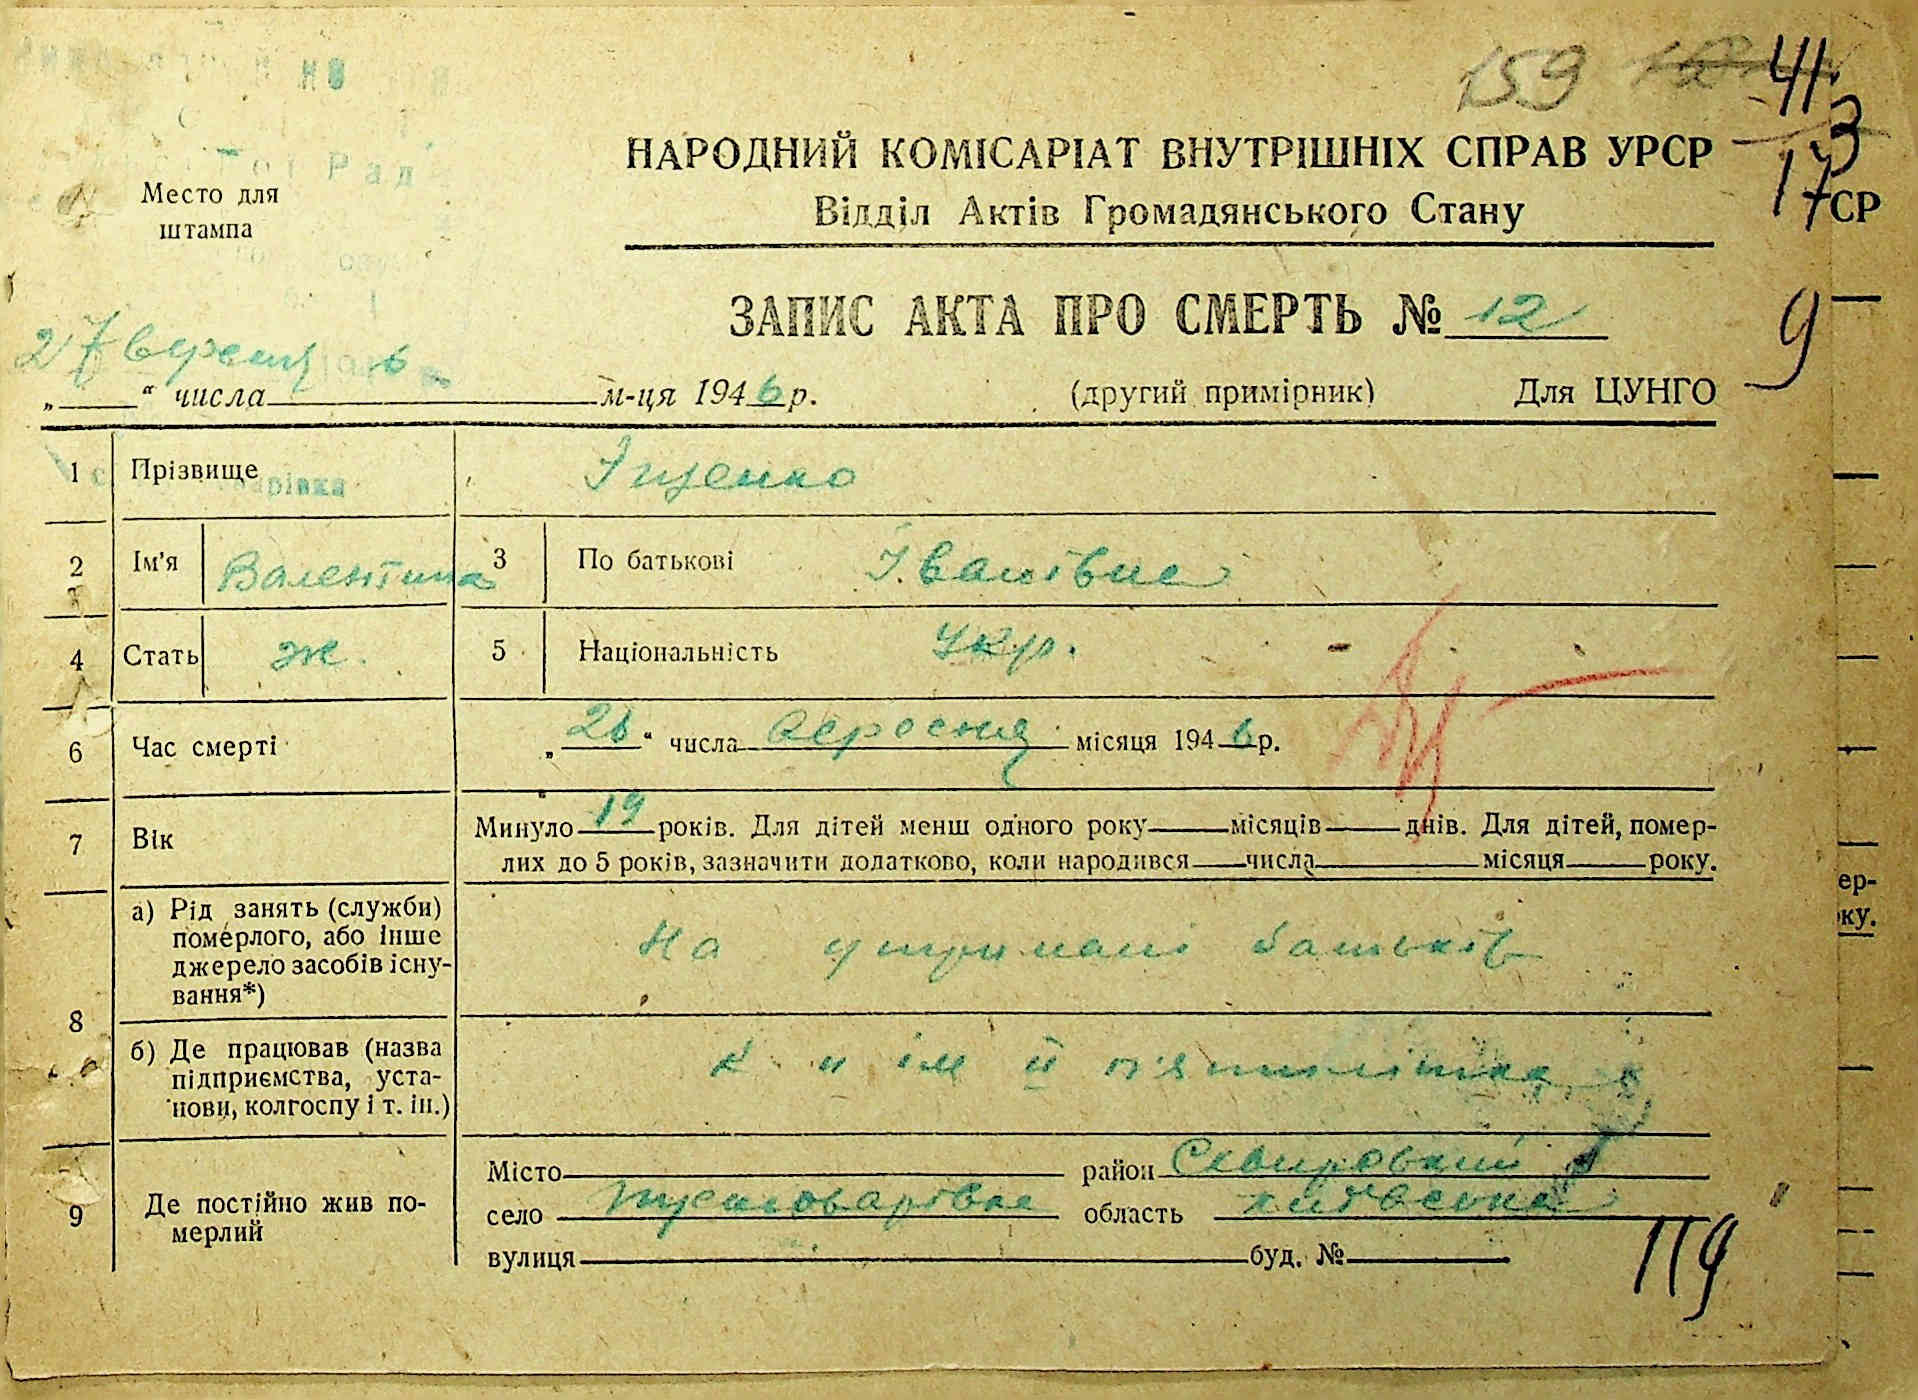 159 41
3
17
НАРОДНИЙ КОМІСАРІАТ ВНУТРІШНІХ СПРАВ УРСР
Відділ Актів Громадянського Стану
СР
Рад
Место для
штампа
ЗАПИС АКТА ПРО СМЕРТЬ № 12
9
27 вересня 6
„ “ числа м-ця 1946 р.
(другий примірник) Для ЦУНГО
1 Прізвище Іщенко
2 Ім'я Валентина 3 По батькові Іванівне
4 Стать ж. 5 Національність Укр.
6 Час смерті „26“ числа вересня місяця 1946 р.
7 Вік Минуло 19 років. Для дітей менш одного року місяців днів. Для дітей, помер-
лих до 5 років, зазначити додатково, коли народився числа місяця року.
ер-
ку.
8 а) Рід занять (служби)
померлого, або інше
джерело засобів існу-
вання*)
На утримані батьків
б) Де працював (назва
підприємства, уста-
нови, колгоспу і т. ін.)
К ім ІІ п'ятилітки
9 Де постійно жив по-
мерлий
Місто район Сквирський
село Пустоварівка область київська
вулиця буд. №
119